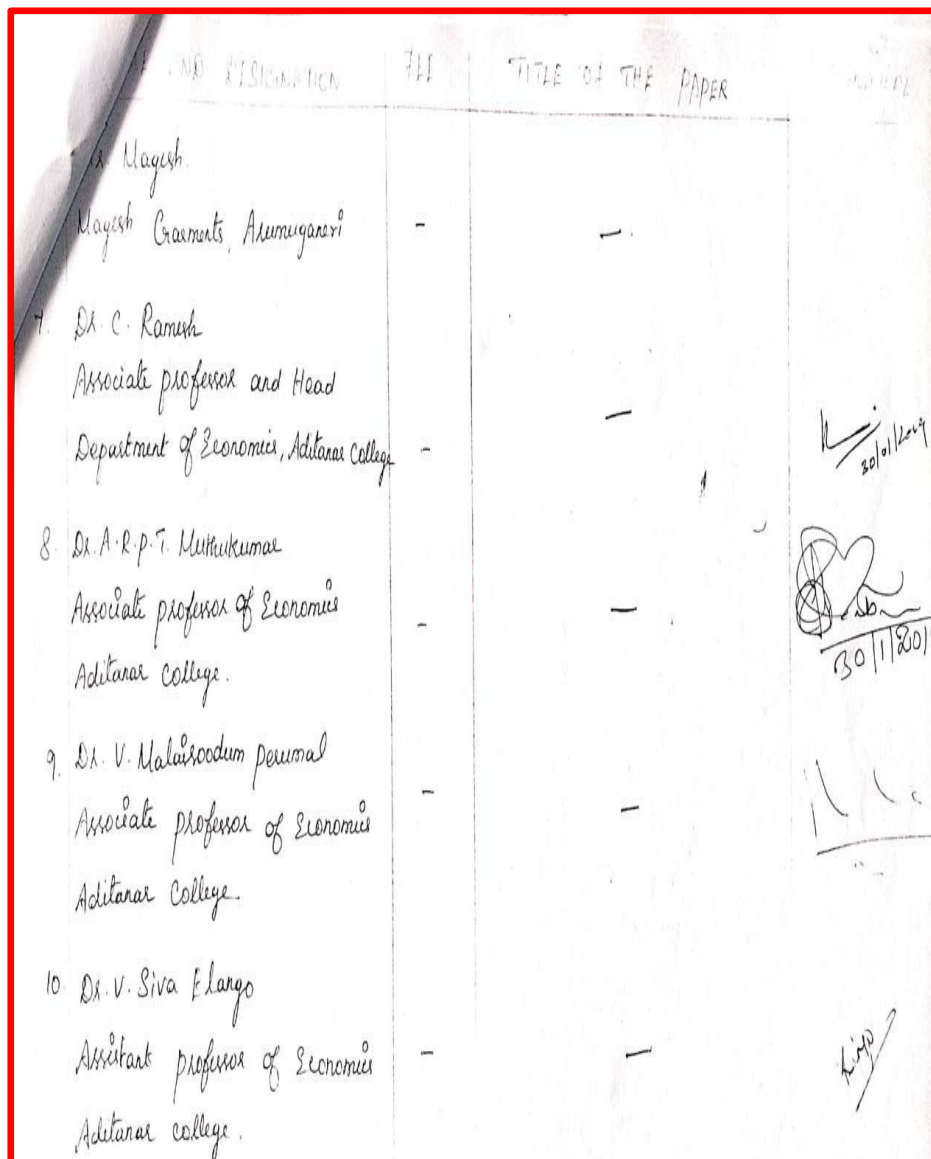 AND DESIGNATION FEE TITLE OF THE PAPER
Magesh
Magesh Garments, Arumuganeri - -
7. Dr. C. Ramesh
Associate professor and Head
Department of Economics, Aditanar College - - 30/01/2019
8. Dr. A.R.P.T. Muthukumar
Associate professor of Economics - -
Aditanar College. 30/1/201
9. Dr. V. Malaisoodum perumal
Associate professor of Economics - -
Aditanar College.
10. Dr. V. Siva Elango
Assistant professor of Economics - -
Aditanar college.